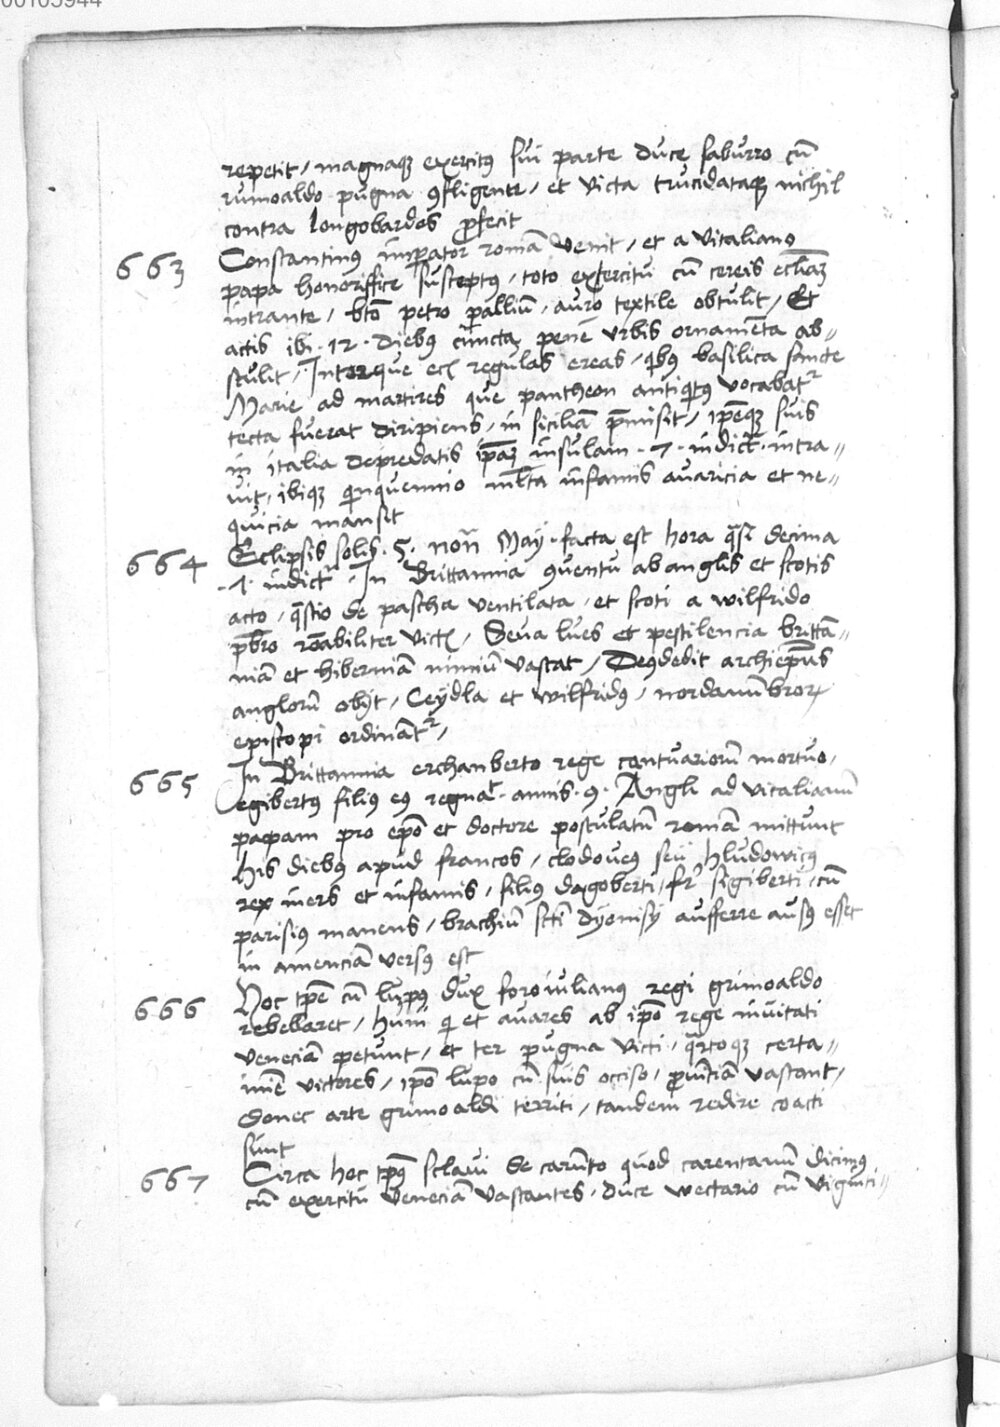 00105944
repetit / magnaqꝫ exercitꝰ sui parte duce saburro cū
rumoaldo pugna ꝯfligente / et victa trucidataqꝫ nichil
contra longobardos ꝓfecit
663 Constantinꝰ imꝑator romā venit / et a vitaliano
papa honoriffice susceptꝰ / toto exercitu cū cereis eccliaꝫ
intrante / bto petro palliū / auro textile obtulit / Et
actis ibi · 12 · diebꝰ cūncta pene vrbis ornamēta ab〃
stulit / Interque ecī regulas ereas / qibꝰ basilica sancte
Marie ad martires que pantheon antiqitꝰ vocabatᷣ
tecta fuerat diripiens / in siciliā p̄misit / ip̄eqꝫ suis
in italia depredatis ip̄aꝫ insulam · 7 · indict · intra〃
uit / ibiqꝫ qinquennio ml̄ta infamis auaricia et ne〃
quicia mansit
664 Eclipsis solis · 5 · non̄ Maÿ · facta est hora q̄si decima
· 1 · indict · In Brittannia ꝯuentu ab anglis et scotis
acto / q̄stio de pascha ventilata / et scoti a wilfrido
pb̄ro rōabiliter victi / Seua lues et pestilencia brittā〃
niā et hiberniā nimiū vastat / Deꝰdedit archiep̄us
anglorū obijt / Ceÿdla et wilfridꝰ / nordanūbroꝝ
episcopi ordinātᷣ /
665 In Brittannia erchanberto rege cantuariorū mortuo /
egibertꝰ filiꝰ eꝰ regnat · annis · 9 · Angli ad vitalianū
papam pro ep̄o et doctore postulatū romā mittunt
his diebꝰ apud francos / clodoueꝰ seu hludowicꝰ
rex iners et infamis / filiꝰ dagoberti / fr̄ sigiberti / cū
parisiꝰ manens / brachiū sct̄i dÿonisÿ aufferre ausꝰ esset
in amenciā versꝰ est
666 Hoc tp̄e cū lupꝰ dux foroiulianꝰ regi grimoaldo
rebellaret / huni qi et auares ab ip̄o rege inuitati
veneciā petunt / et ter pugna victi / q̄rtoqꝫ certa〃
mīe victores / ip̄o lupo cū suis occiso / ꝓuīciā vastant /
donec arte grimoaldi territi / tandem redire coacti
sunt
667 Circa hoc tp̄ꝰ sclaui de carūto quod carentanū dicimꝰ
cū exercitu veneciā vastantes / duce wectario cū viginti〃